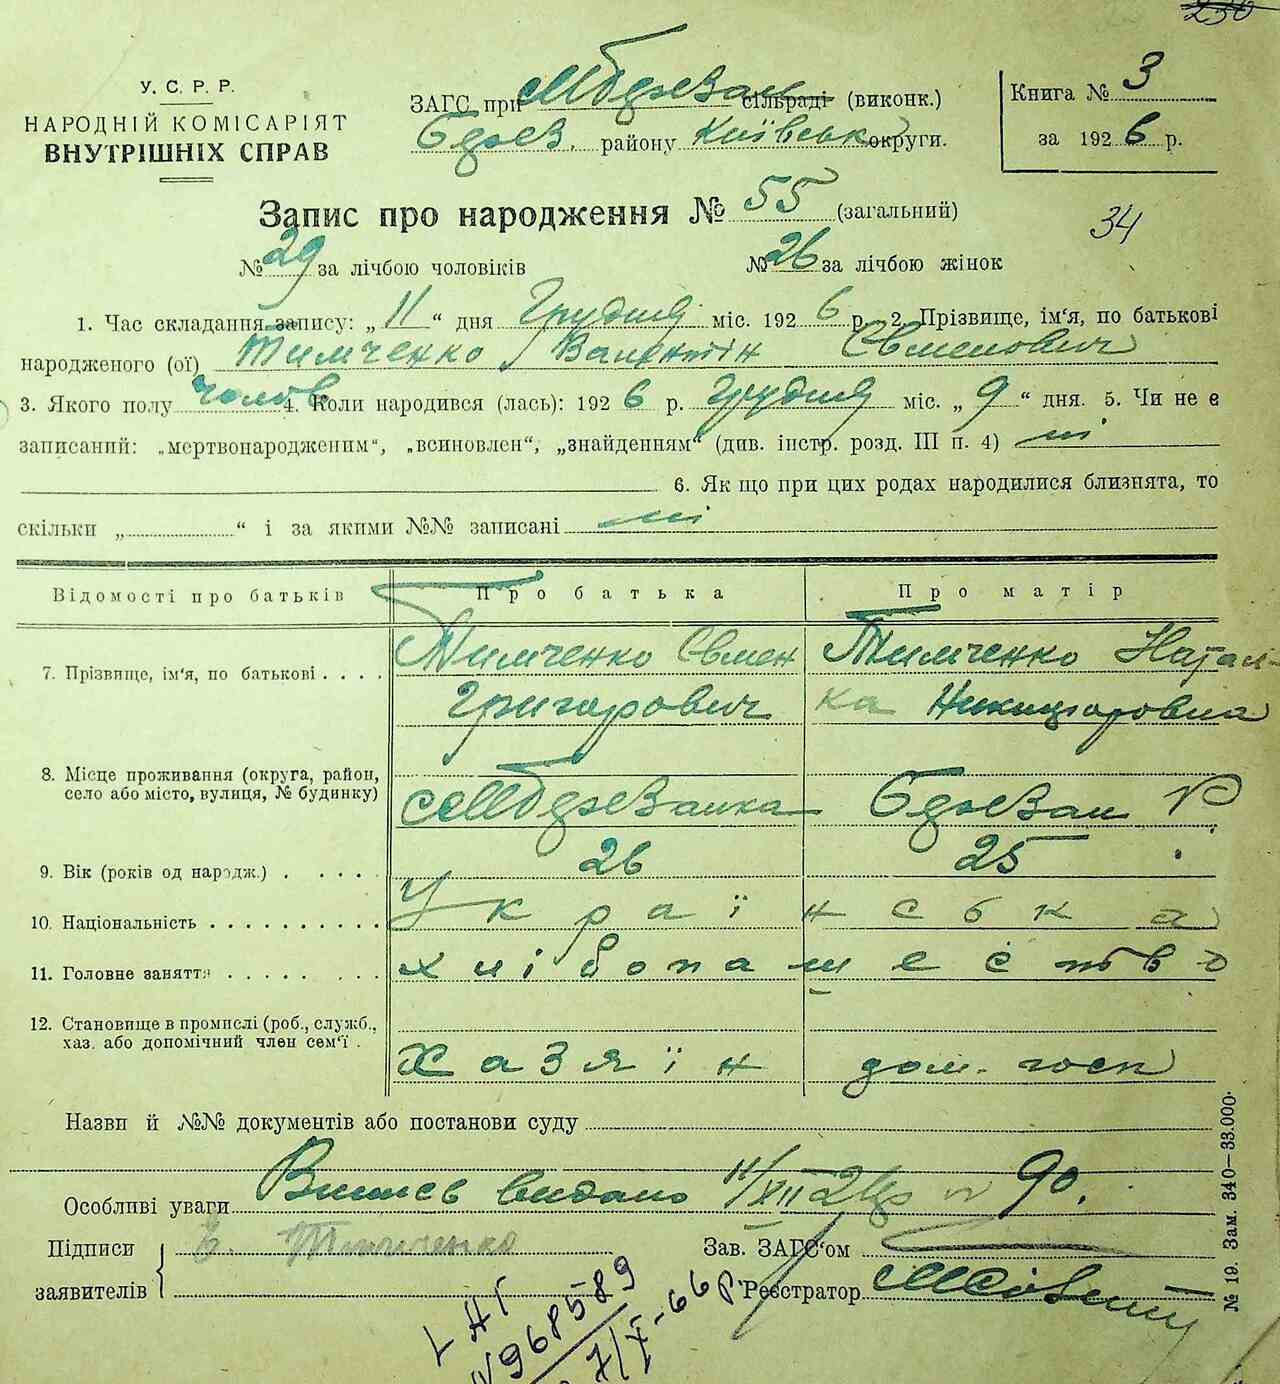 230
У. С. Р. Р.
НАРОДНІЙ КОМІСАРІЯТ
ВНУТРІШНІХ СПРАВ
ЗАГС при сільраді (виконк.)
району Київськ округи.
Книга № 3
за 1926 р.
Запис про народження № 55 (загальний)
34
№ 29 за лічбою чоловіків № 26 за лічбою жінок
1. Час складання запису: „ 11 “ дня Грудня міс. 1926 р. 2. Прізвище, ім'я, по батькові
народженого (ої) Тимченко Валентін Євменович
3. Якого полу чолов 4. Коли народився (лась): 1926 р. Грудня міс. „ 9 “ дня. 5. Чи не є
записаний: „мертвонародженим“, „всиновлен“, „знайденням“ (див. інстр. розд. III п. 4) ні
6. Як що при цих родах народилися близнята, то
скільки „ “ і за якими №№ записані ні
Відомості про батьків Про батька Про матір
7. Прізвище, ім'я, по батькові Тимченко Євмен Тимченко Натал-
Григорович ка Никифоровна
8. Місце проживання (округа, район,
село або місто, вулиця, № будинку)
9. Вік (років од народж.) 26 25
10. Національність Українська
11. Головне заняття хлібопашество
12. Становище в промислі (роб., служб.,
хаз. або допомічний член сем'ї .
Хазяїн дом. госп
Назви й №№ документів або постанови суду
Особливі уваги Випись видано 11/XII 26р № 90.
Підписи Є. Тимченко Зав. ЗАГС'ом
заявителів Реєстратор
№ 19. Зам. 340—33.000.
968589
7/X-66 р